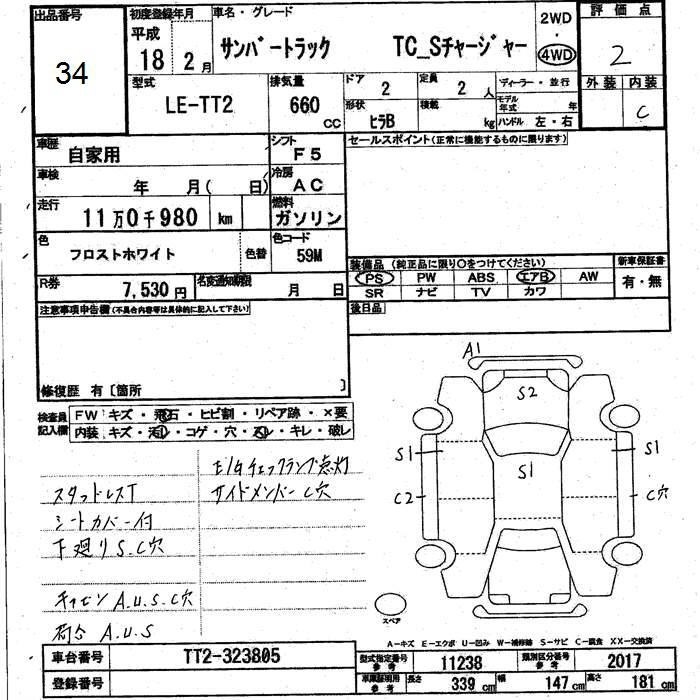 出品番号 初度登録年月 車名・グレード 2WD ・ 4WD 評価点
34 平成 18年 2月 サンバートラック TC_Sチャージャー 2
型式 排気量 ドア 定員 ディーラー・並行 外装 内装
LE-TT2 660 CC 2 2人 モデル年式 年 C
形状 積載 kg ハンドル 左・右
ヒラB
車歴 自家用 シフト F5 セールスポイント(正常に機能するものに限ります)
車検 年 月( 日) 冷房 AC
走行 11万0千980 km 燃料 ガソリン
色 フロストホワイト 色替 色コード 59M
装備品(純正品に限り○をつけてください) 新車保証書
PS PW ABS エアB AW 有・無
SR ナビ TV カワ
R券 7,530円 名変通知期限 月 日
後日品
注意事項申告欄(不具合内容等は具体的に記入して下さい)
修復歴 有〔箇所 〕
検査員記入欄 FW キズ・飛石・ヒビ割・リペア跡・×要
内装 キズ・汚レ・コゲ・穴・スレ・キレ・破レ
E/Gチェックランプ点灯
スタッドレスT サイドメンバーC穴
シートカバー付
下廻りS.C穴
キャビンA.U.S.C穴
荷台A.U.S
A1
S2
S1 S1 S1
C2 C穴
スペア
A-キズ E-エクボ U-凹み W-補修跡 S-サビ C-腐食 XX-交換済
車台番号 TT2-323805 型式指定番号 参考 11238 類別区分番号 参考 2017
登録番号 車庫証明用 参考 長さ 339 cm 幅 147 cm 高さ 181 cm